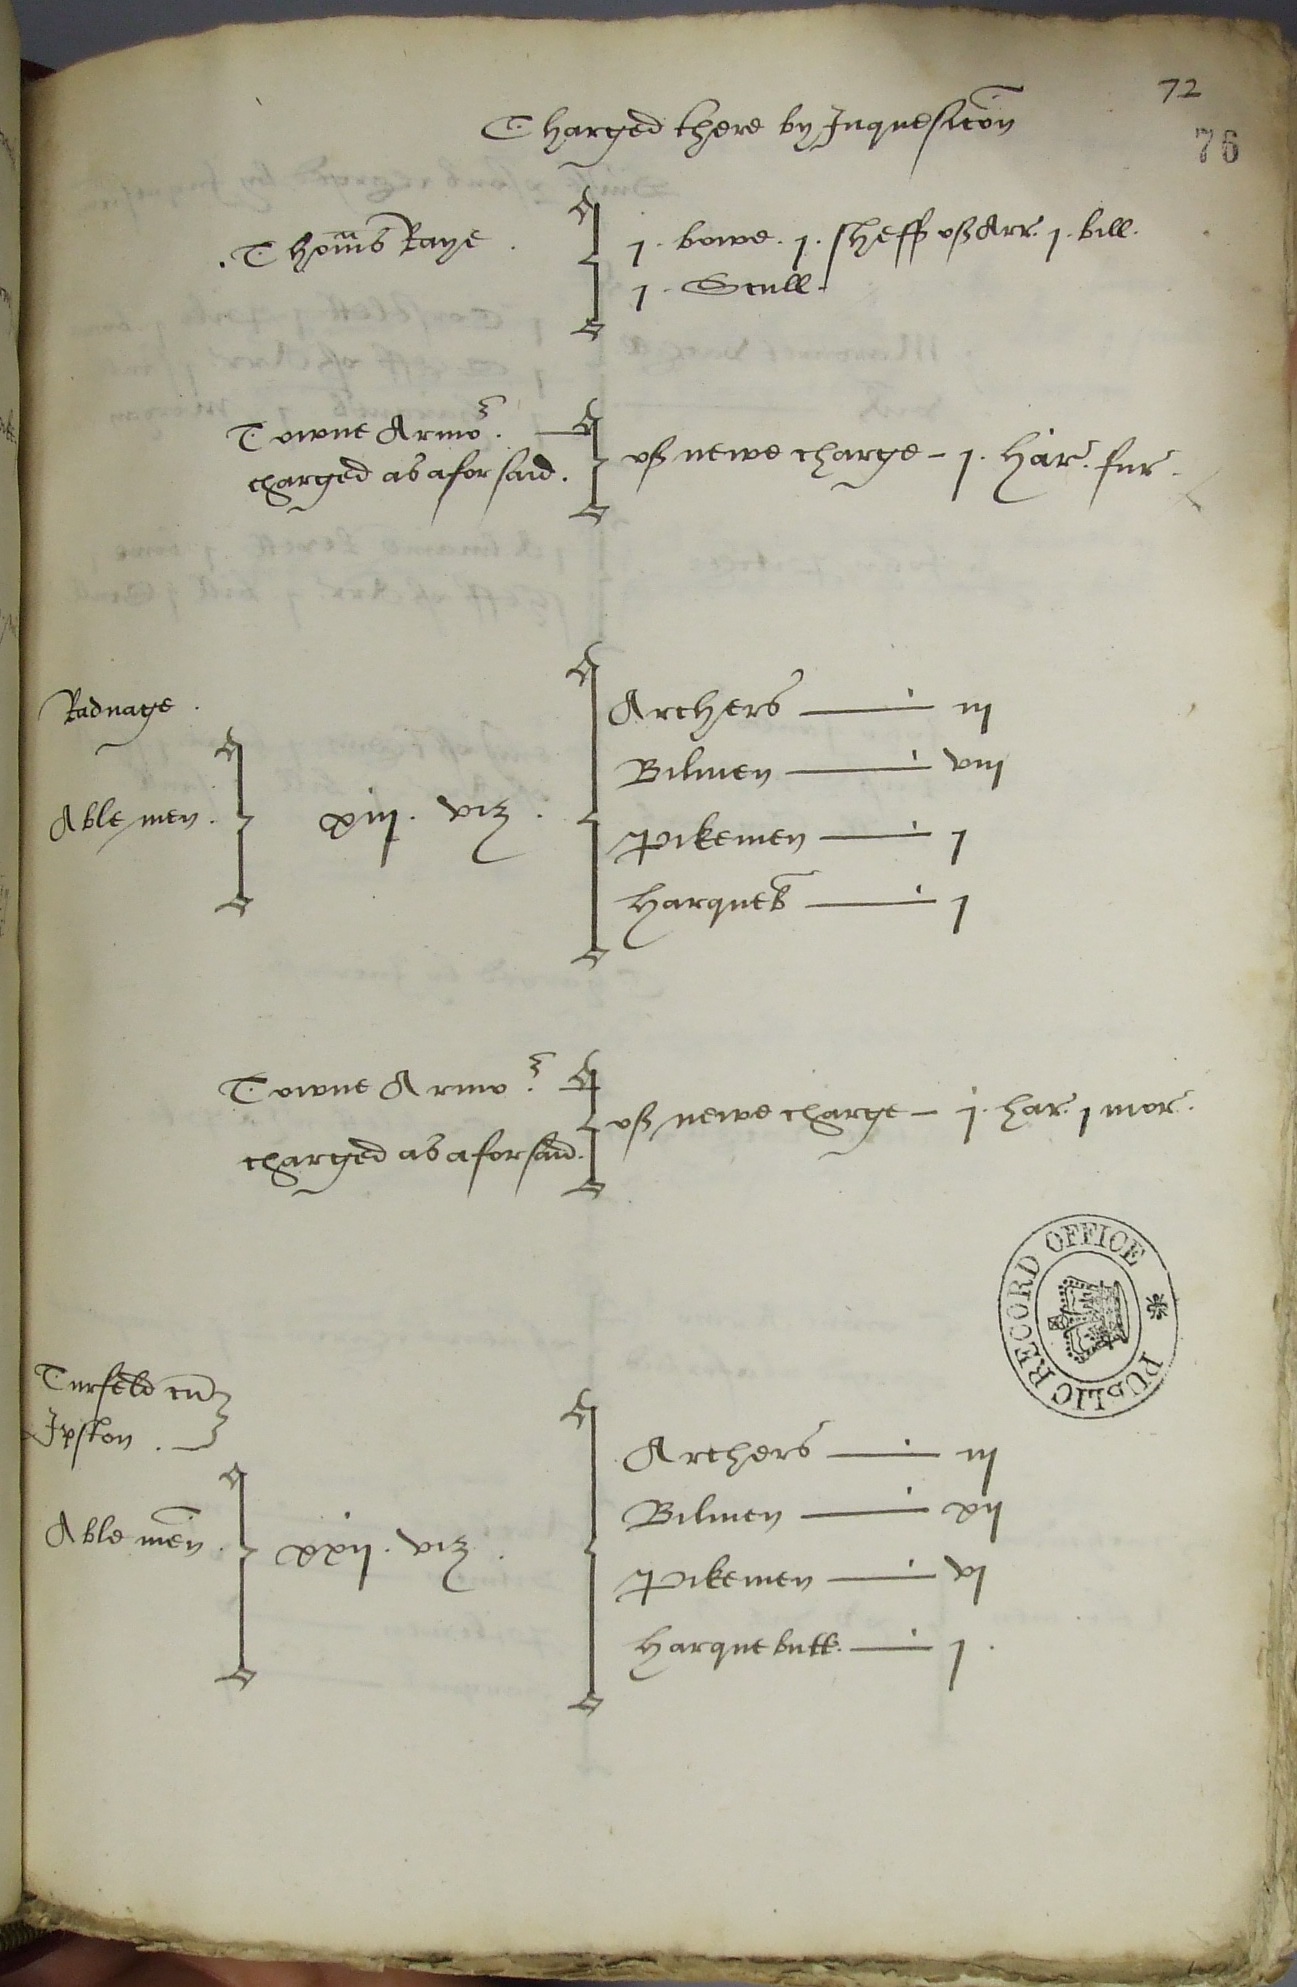 72
76
Charged there by Inquesicon
Thoms Raye . j . bowe . j . sheff of Arr . j . bill .
j . Scull .
Towne Armor .
charged as aforsaid . of newe charge – j . Har . fur .
Radnage .
Able men . xiij . viz . Archers iij
Bilmen viij
Pikemen j
Harqueb j
Towne Armor
charged as aforsaid . of newe charge – j . har . j mor .
Turfeld cu
Ipston .
Able men . xxij . viz . Archers iij
Bilmen xij
Pikemen vj
Harquebutt . j .
PUBLIC RECORD OFFICE